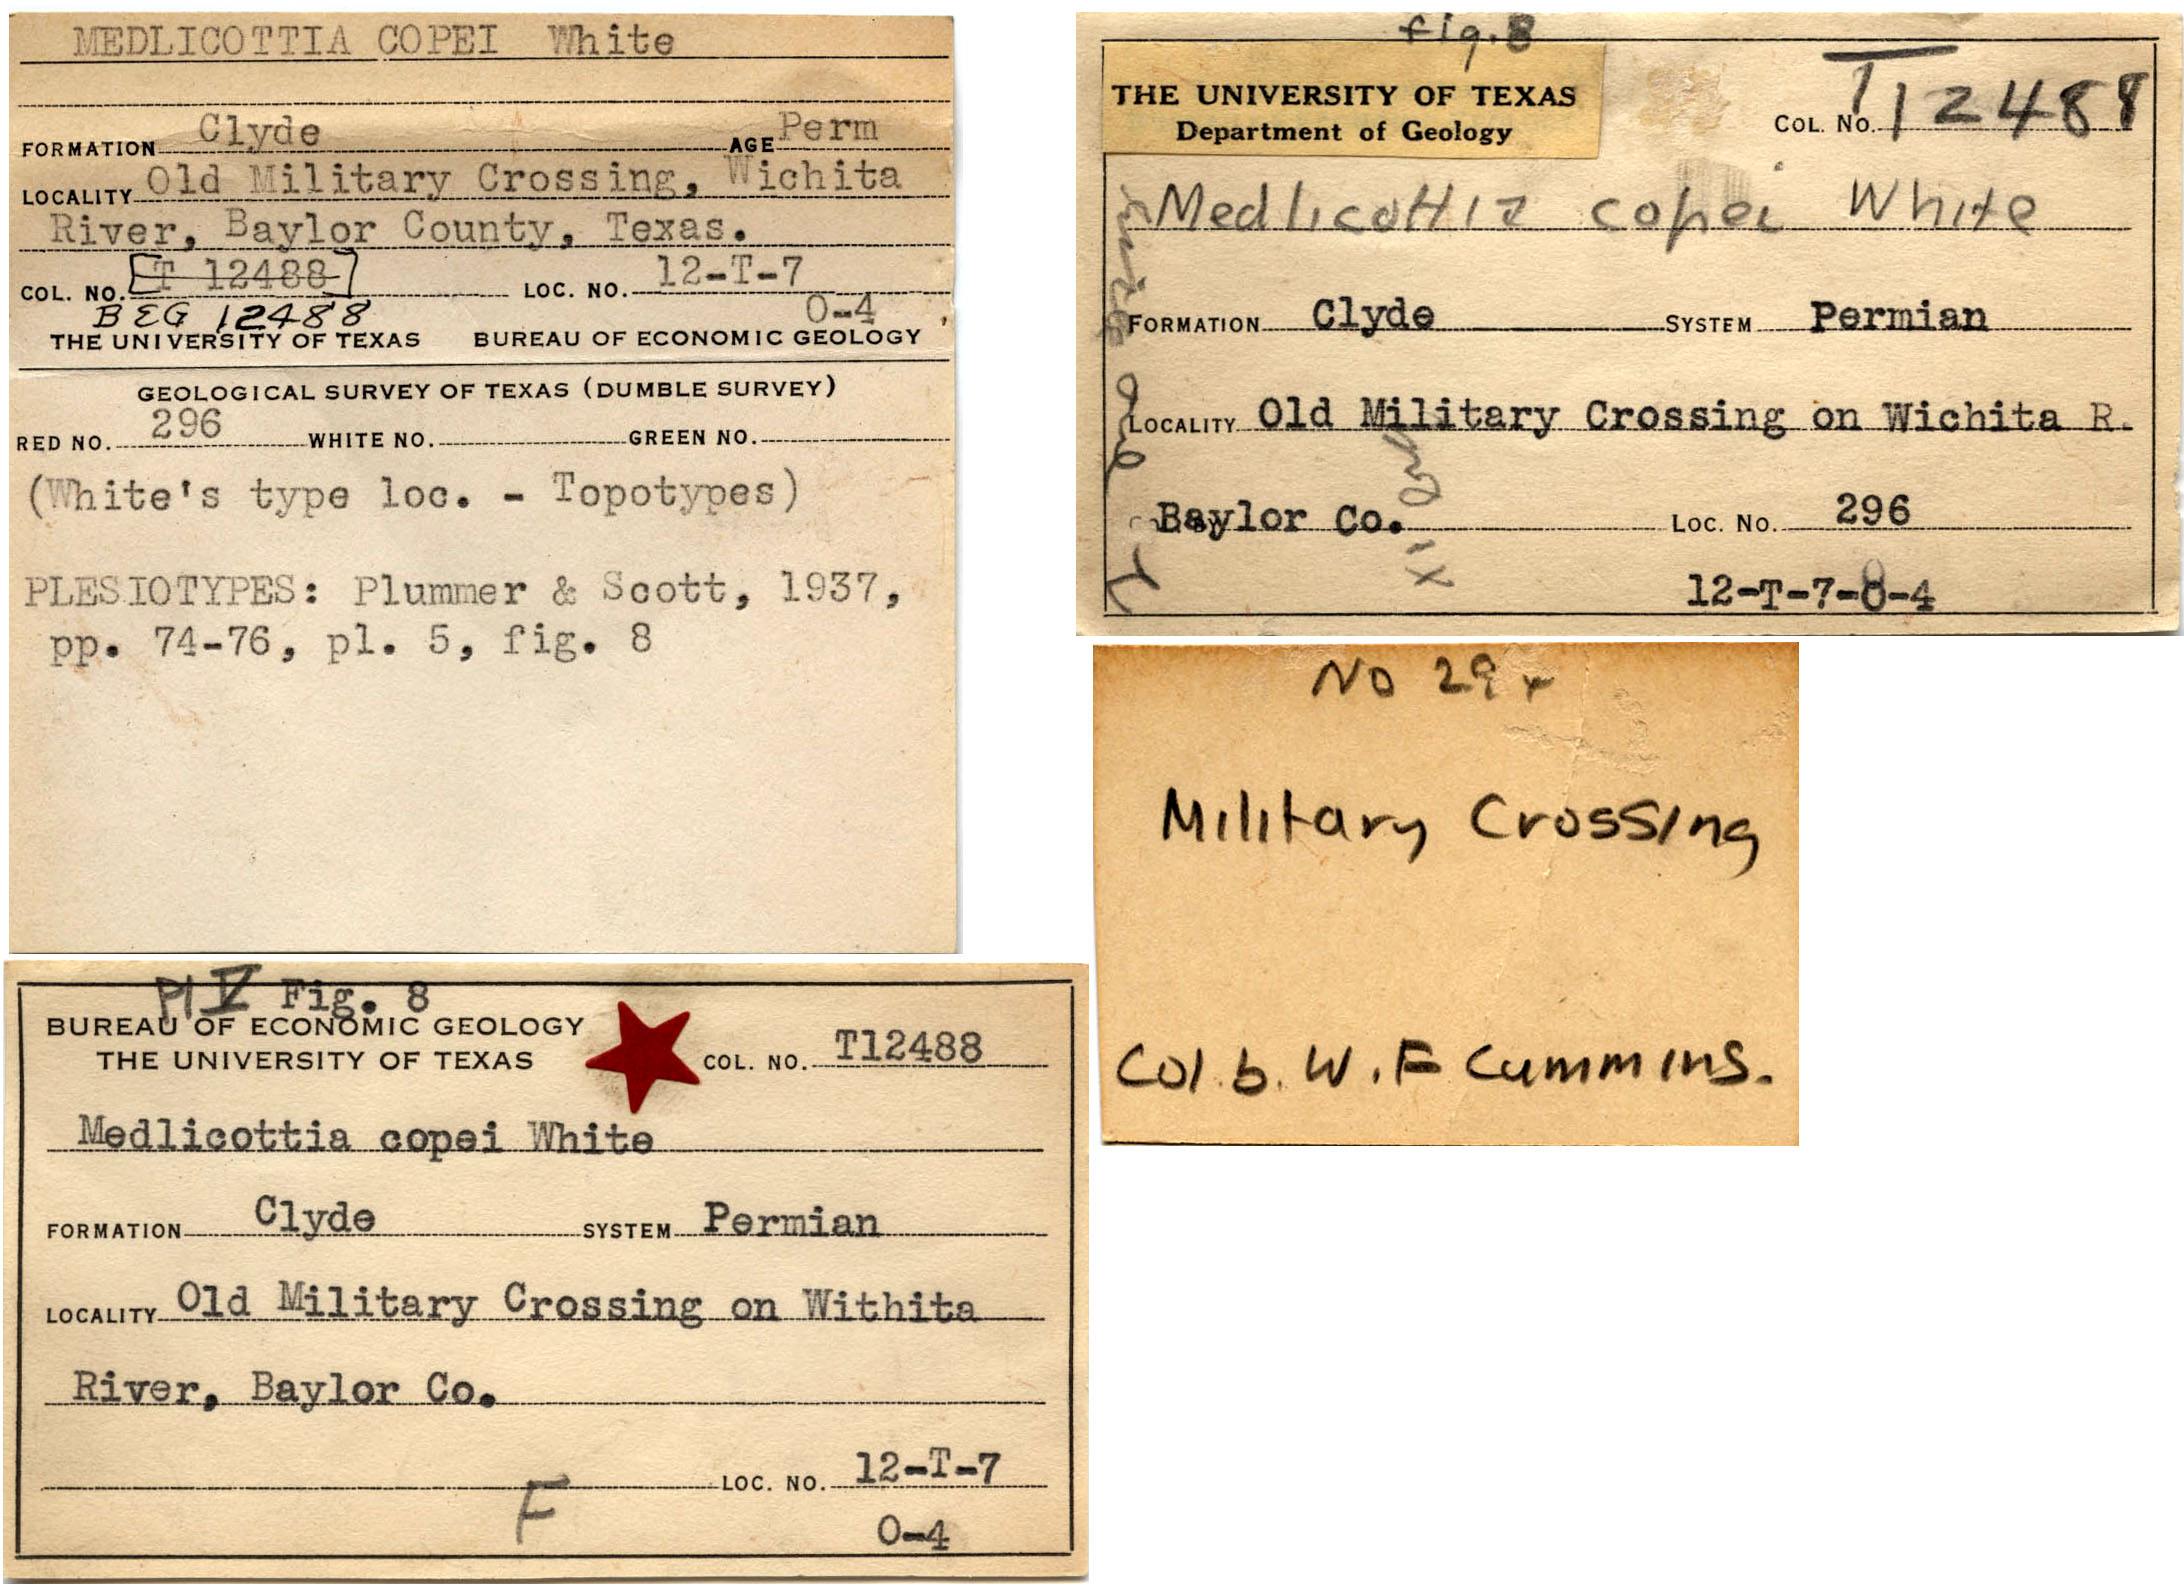 MEDLICOTTIA COPEI White
FORMATION Clyde AGE Perm
LOCALITY Old Military Crossing, Wichita
River, Baylor County, Texas.
COL. NO. [T 12488] LOC. NO. 12-T-7
BEG 12488 0-4
THE UNIVERSITY OF TEXAS BUREAU OF ECONOMIC GEOLOGY
GEOLOGICAL SURVEY OF TEXAS (DUMBLE SURVEY)
RED NO. 296 WHITE NO. GREEN NO.
(White's type loc. - Topotypes)
PLESIOTYPES: Plummer & Scott, 1937,
pp. 74-76, pl. 5, fig. 8
fig. 8
THE UNIVERSITY OF TEXAS
Department of Geology
COL. NO. T12488
Medlicottia copei White
FORMATION Clyde SYSTEM Permian
LOCALITY Old Military Crossing on Wichita R.
Baylor Co. LOC. NO. 296
12-T-7-0-4
No 29
Military Crossing
Col. b. W. F Cummins.
Pl V Fig. 8
BUREAU OF ECONOMIC GEOLOGY
THE UNIVERSITY OF TEXAS
COL. NO. T12488
Medlicottia copei White
FORMATION Clyde SYSTEM Permian
LOCALITY Old Military Crossing on Withita
River, Baylor Co.
LOC. NO. 12-T-7
F
0-4